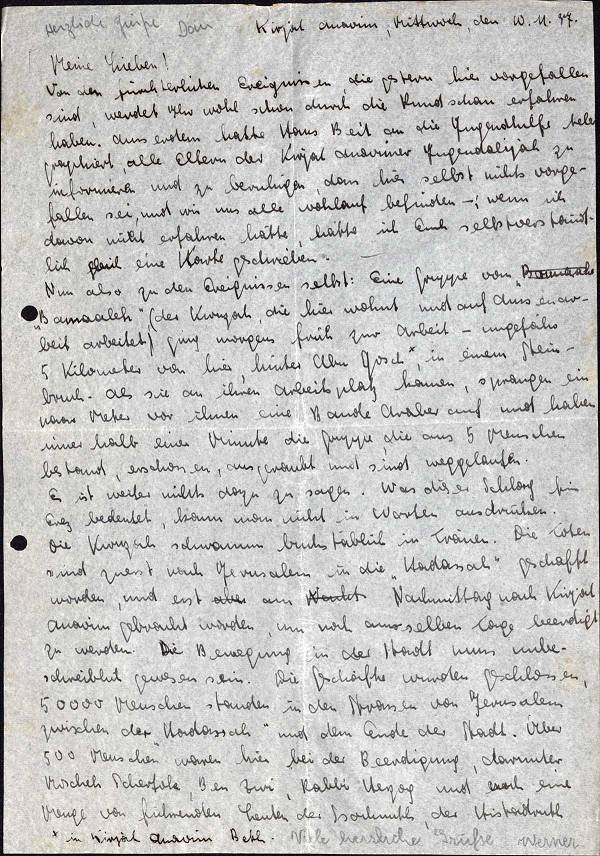 Herzliche Grüsse Dan
Kirjat Anavim, Mittwoch, den 10.11.37.
Meine Lieben!
Von den fürchterlichen Ereignissen, die gestern hier vorgefallen
sind, werdet Ihr wohl schon durch die Rundschau erfahren
haben. Ausserdem hatte Hans Beit an die Jugendhilfe tele-
graphiert, alle Eltern der Kirjat Anavimer Jugendalijah zu
informieren und zu beruhigen, dass hier selbst nichts vorge-
fallen sei, und wir uns alle wohlauf befinden –; wenn ich
davon nicht erfahren hätte, hätte ich Euch selbstverständ-
lich gleich eine Karte geschrieben. –
Nun also zu den Ereignissen selbst: Eine Gruppe von
"Bamaaleh", (der Kwuzah, die hier wohnt und auf Aussenar-
beit arbeitet) ging morgens früh zur Arbeit – ungefähr
5 Kilometer von hier, hinter Abu Gosch*, in einem Stein-
bruch. Als sie an ihren Arbeitsplatz kamen, sprangen ein
paar Meter vor ihnen eine Bande Araber auf und haben
innerhalb einer Minute die Gruppe, die aus 5 Menschen
bestand, erschossen, ausgeraubt und sind weggelaufen.
Es ist weiter nichts dazu zu sagen. Was dieser Schlag für
Erez bedeutet, kann man nicht in Worten ausdrücken.
Die Kwuzah schwamm buchstäblich in Tränen. Die Toten
sind zuerst nach Jerusalem in die "Hadassah" geschafft
worden, und erst am Nachmittag nach Kirjat
Anavim gebracht worden, um noch am selben Tage beerdigt
zu werden. Die Bewegung in der Stadt muss unbe-
schreiblich gewesen sein. Die Geschäfte wurden geschlossen,
50000 Menschen standen in den Strassen von Jerusalem
zwischen der "Hadassah" und dem Ende der Stadt. Über
500 Menschen waren hier bei der Beerdigung, darunter
Mosche Schertok, Ben Zwi, Rabbi Herzog und noch eine
Menge von führenden Leuten der Sochnuth, der Histadruth
* in Kirjat Anavim Beth. Viele herzliche Grüße Werner